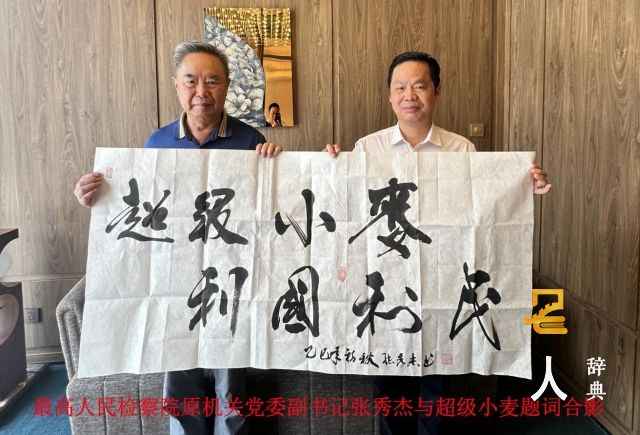 超级小麥
利國利民
乙巳年 秋 张秀杰书
人
辞典
最高人民检察院原机关党委副书记张秀杰与超级小麦题词合影